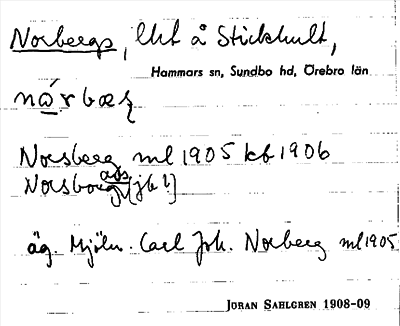 Norbergs, lht å Stickhult,
Hammars sn, Sundbo hd, Örebro län
Norsberg ml 1905 kb 1906
äg. Mjöln. Carl Joh. Norberg ml 1905
JORAN SAHLGREN 1908-09